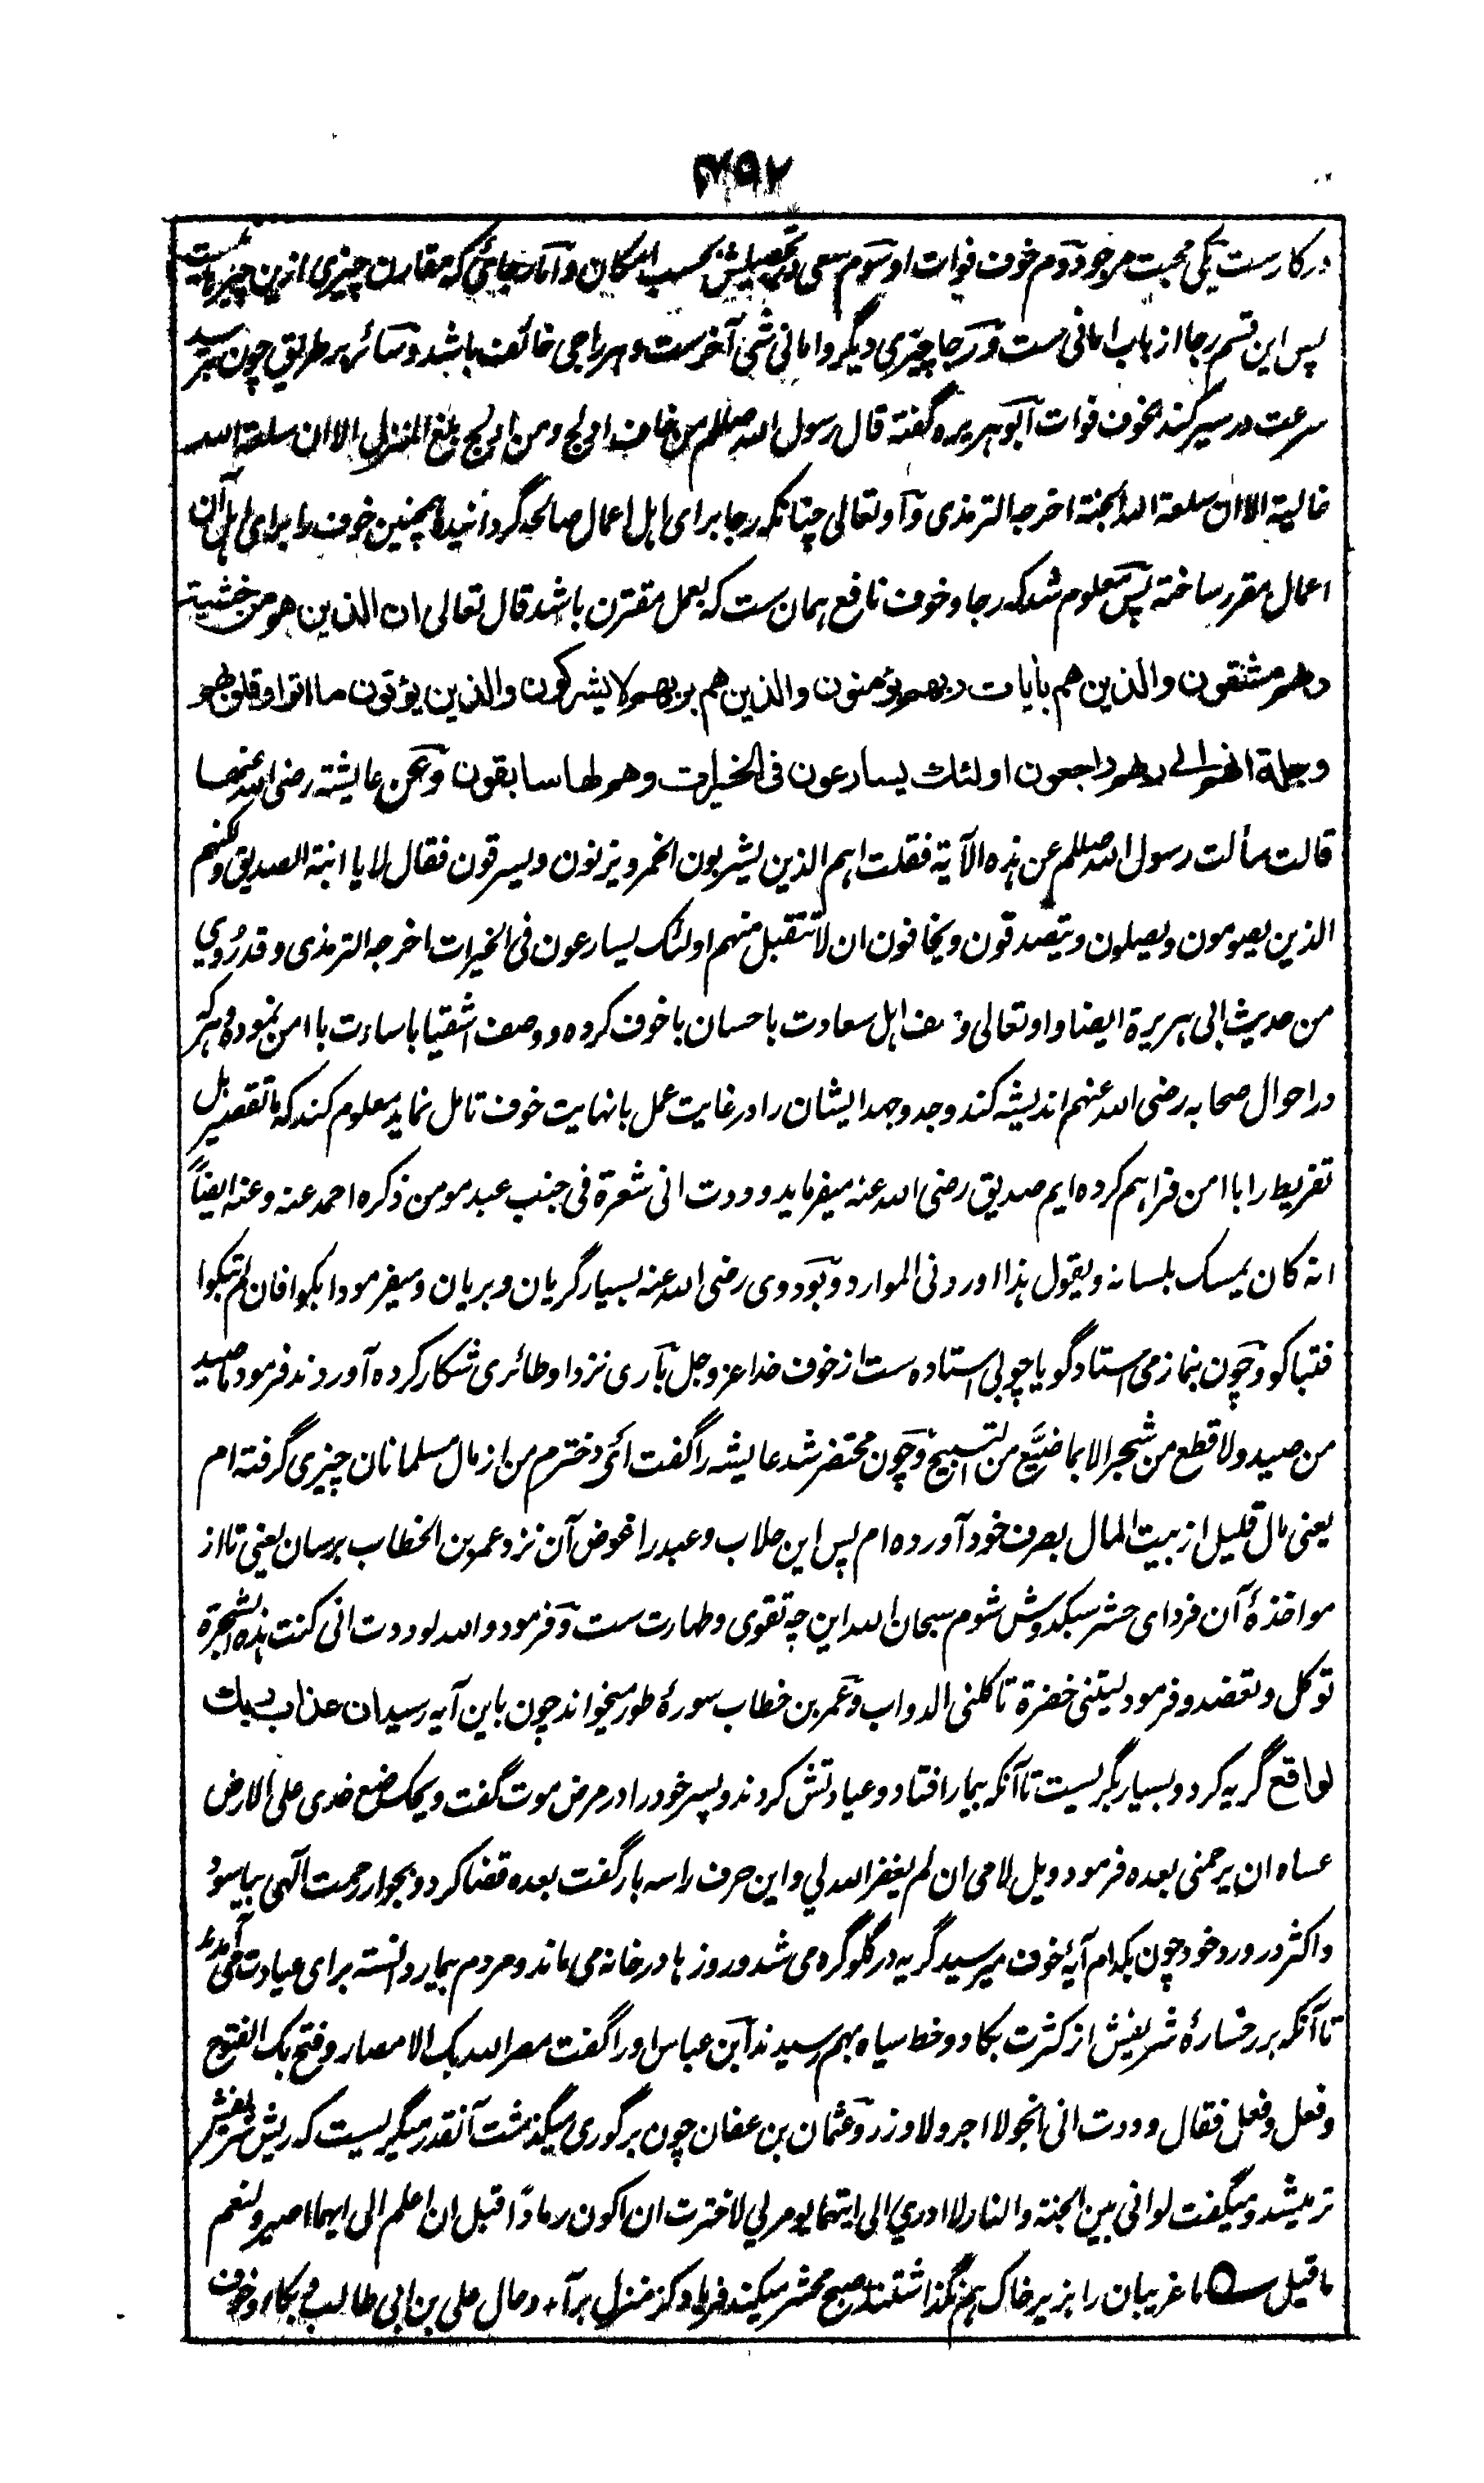 ۴۹۲
درکارست یکی محبت مرجو دوم خوف فوات او سوم سعی در تحصیلش بحسب امکان و آما رجائی که مقارن چیزی ازین چیزها نیست
پس این قسم رجا از باب امانی ست و رجا چیزی دیگر و امانی شی آخرست و هر راجی خائف باشد و سائر بر طریق چون بترسد
سرعت در سیر کند بخوف فوات ابو هریره گفته قال رسول الله صللم من خاف ادلج و من ادلج بلغ المنزل الا ان سلعة الله
غالیة الا ان سلعة الله الجنة اخرجه الترمذی و او تعالی چنانکه رجا برای اهل اعمال صالحه گردانیده همچنین خوف را برای اهل آن
اعمال مقرر ساخته پس معلوم شد که رجا و خوف نافع همان ست که بعمل مقترن باشد قال تعالی ان الذین هم من خشیة
ربهم مشفقون والذین هم بآیات ربهم یؤمنون والذین هم بربهم لا یشرکون والذین یؤتون ما اتوا وقلوبهم
وجلة انهم الی ربهم راجعون اولئك یسارعون فی الخیرات وهم لها سابقون و عن عایشة رضی الله عنها
قالت سألت رسول الله صللم عن هذه الآیة فقلت اهم الذین یشربون الخمر و یزنون و یسرقون فقال لا یا ابنة الصدیق ولکنهم
الذین یصومون و یصلون و یتصدقون و یخافون ان لا تتقبل منهم اولئک یسارعون فی الخیرات اخرجه الترمذی و قد رُوِی
من حدیث ابی هریرة ایضا و او تعالی وصف اهل سعادت باحسان با خوف کرده و وصف اشقیا باساءت با امن نموده و هر که
در احوال صحابه رضی الله عنهم اندیشه کند و جد و جهد ایشان را در غایت عمل با نهایت خوف تامل نماید معلوم کند که ما تقصیر بل
تفریط را با امن فراهم کرده ایم صدیق رضی الله عنه میفرماید وددت انی شعرة فی جنب عبد مومن ذکره احمد عنه و عنه ایضاً
انه کان یمسک بلسانه و یقول هذا اوردنی الموارد و بود وی رضی الله عنه بسیار گریان و بریان و میفرمود ابکوا فان لم تبکوا
فتباکوا و چون بنماز می استاد گویا چوبی استاده ست از خوف خدا عز و جل باری نزد او طائری شکار کرده آوردند فرمود ما صید
من صید ولا قطع من شجر الا بما ضیّع من التسبیح و چون محتضر شد عایشه را گفت ای دخترم من از مال مسلمانان چیزی گرفته ام
یعنی مال قلیل از بیت المال بصرف خود آورده ام پس این حلاب و عبد را عوض آن نزد عمر بن الخطاب برسان یعنی تا از
مواخذۀ آن فردای حشر سبکدوش شوم سبحان الله این چه تقوی و طهارت ست و فرمود والله لوددت انی کنت هذه الشجرة
توکل و تعضد و فرمود لیتنی خضرة تاکلنی الدواب و عمر بن خطاب سورۀ طور میخواند چون باین آیه رسید ان عذاب ربك
لواقع گریه کرد و بسیار بگریست تا آنکه بیمار افتاد و عیادتش کردند و پسر خود را در مرض موت گفت ویحک ضع خدی علی الارض
عساه ان یرحمنی بعده فرمود ویل لامی ان لم یغفر الله لی و این حرف را سه بار گفت بعده قضا کرد و بجوار رحمت الهی بیاسود
و اکثر در ورد خود چون بکدام آیۀ خوف میرسید گریه در گلو گره می شد و روزها در خانه می ماند و مردم بیمار دانسته برای عیادت می آمدند
تا آنکه بر رخسارۀ شریفش از کثرت بکا دو خط سیاه بهم رسیدند ابن عباس او را گفت مصر الله بک الامصار و فتح بک الفتوح
و فعل و فعل فقال وددت انی انجو لا اجر ولا وزر و عثمان بن عفان چون بر گوری میگذشت آنقدر میگریست که ریش شریفش
تر میشد و میگفت لو انی بین الجنة و النار لا ادری الی ایتهما یومر لی لاخترت ان اکون رمادًا قبل ان اعلم الی ایهما اصیر و لنعم
ما قیل ؎ ما غریبان را بزیر خاک هم نگذاشتند صبح محشر میکند فریاد کز منزل برآ و حال علی بن ابی طالب در بکا و خوف